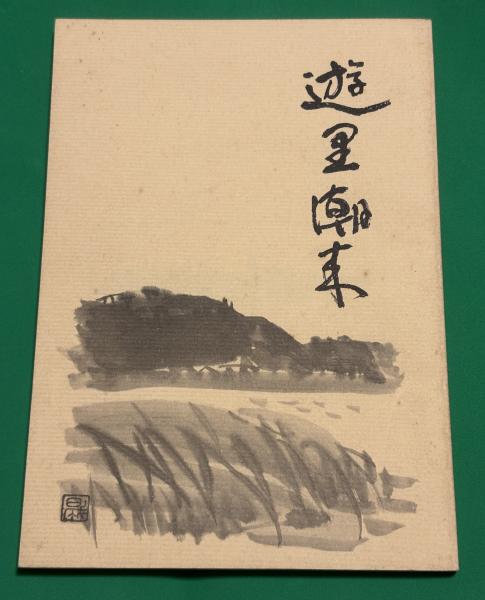 遊里潮来